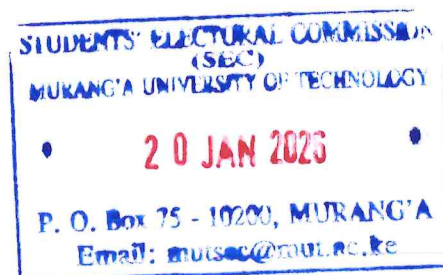 STUDENTS' ELECTORAL COMMISSION
(SEC)
MURANG'A UNIVERSITY OF TECHNOLOGY
20 JAN 2026
P. O. Box 75 - 10200, MURANG'A
Email: mutsec@mut.ac.ke